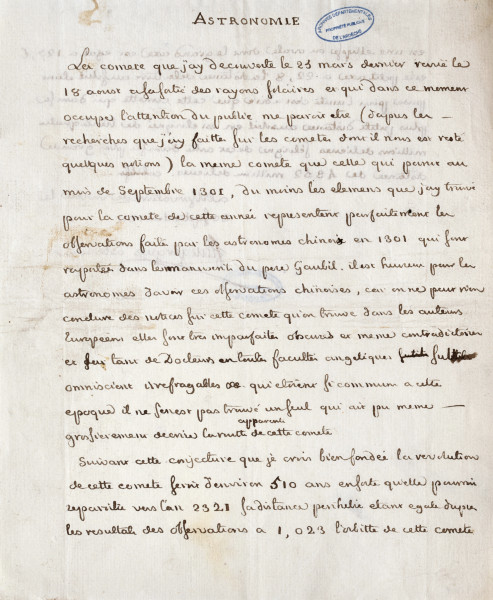 ASTRONOMIE
ARCHIVES DÉPARTEMENTALES
PROPRIÉTÉ PUBLIQUE
DE L'ARDÈCHE
La comete que j'ay decouverte le 25 mars dernier revue le
18 aoust desgagée des rayons solaires et qui dans ce moment
occupe l'attention du public me paroit etre (d'apres les
recherches que j'ay faitte sur les cometes dont il nous est reste
quelques notions) la meme comete que celle qui parut au
mois de Septembre 1301, du moins les elemens que j'ay trouvé
pour la comete de cette année representent parfaitement les
observations faite par les astronomes chinois en 1301 qui sont
raportés dans le manuscrit du pere Gaubil. il est heureux pour les
astronomes d'avoir ces observations chinoises, car on ne peut rien
conclure des notices sur cette comete qu'on trouve dans les auteurs
Européens elles sont tres imparfaites obscures et meme contradictoires
et tant de Docteurs en toute facultés angeliques
omniscient irrefragables qui etoient si commun a cette
epoque il ne s'en est pas trouvé un seul qui ait pu meme
apparente
grossierement decrire la route de cette comete
Suivant cette conjecture que je crois bien fondée la revolution
de cette comete seroit d'environ 510 ans ensorte qu'elle pourroit
reparoitre vers l'an 2321 sa distance perihelie etant egale d'apres
les resultats des observations a 1,023 l'orbitte de cette comete